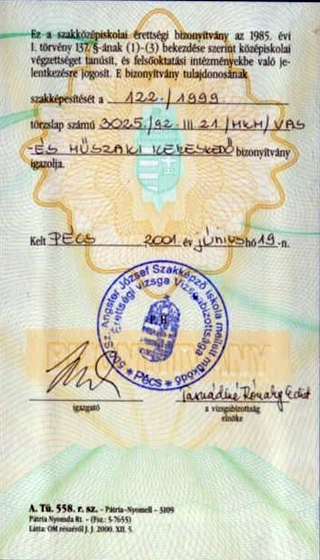 Ez a szakközépiskolai érettségi bizonyítvány az 1985. évi
I. törvény 137. §-ának (1)-(3) bekezdése szerint középiskolai
végzettséget tanúsít, és felsőoktatási intézményekbe való je-
lentkezésre jogosít. E bizonyítvány tulajdonosának
szakképesítését a 122./1999
törzslap számú 3025/92-III.21/MKM/VAS
-ÉS MŰSZAKI KERESKEDŐ bizonyítvány
igazolja.
Kelt PÉCS 2001. év június hó 19.-n.
500 Sz. Angster József Szakképző Iskola mellett működő
Érettségi vizsga Vizsgabizottsága
P. H.
* Pécs *
BIZONYÍTVÁNY
igazgató
a vizsgabizottság
elnöke
A. Tü. 558. r. sz. – Pátria-Nyomell – 5109
Pátria Nyomda Rt. – (Fsz.: 5-7655)
Látta: OM részéről J. J. 2000. XII. 5.